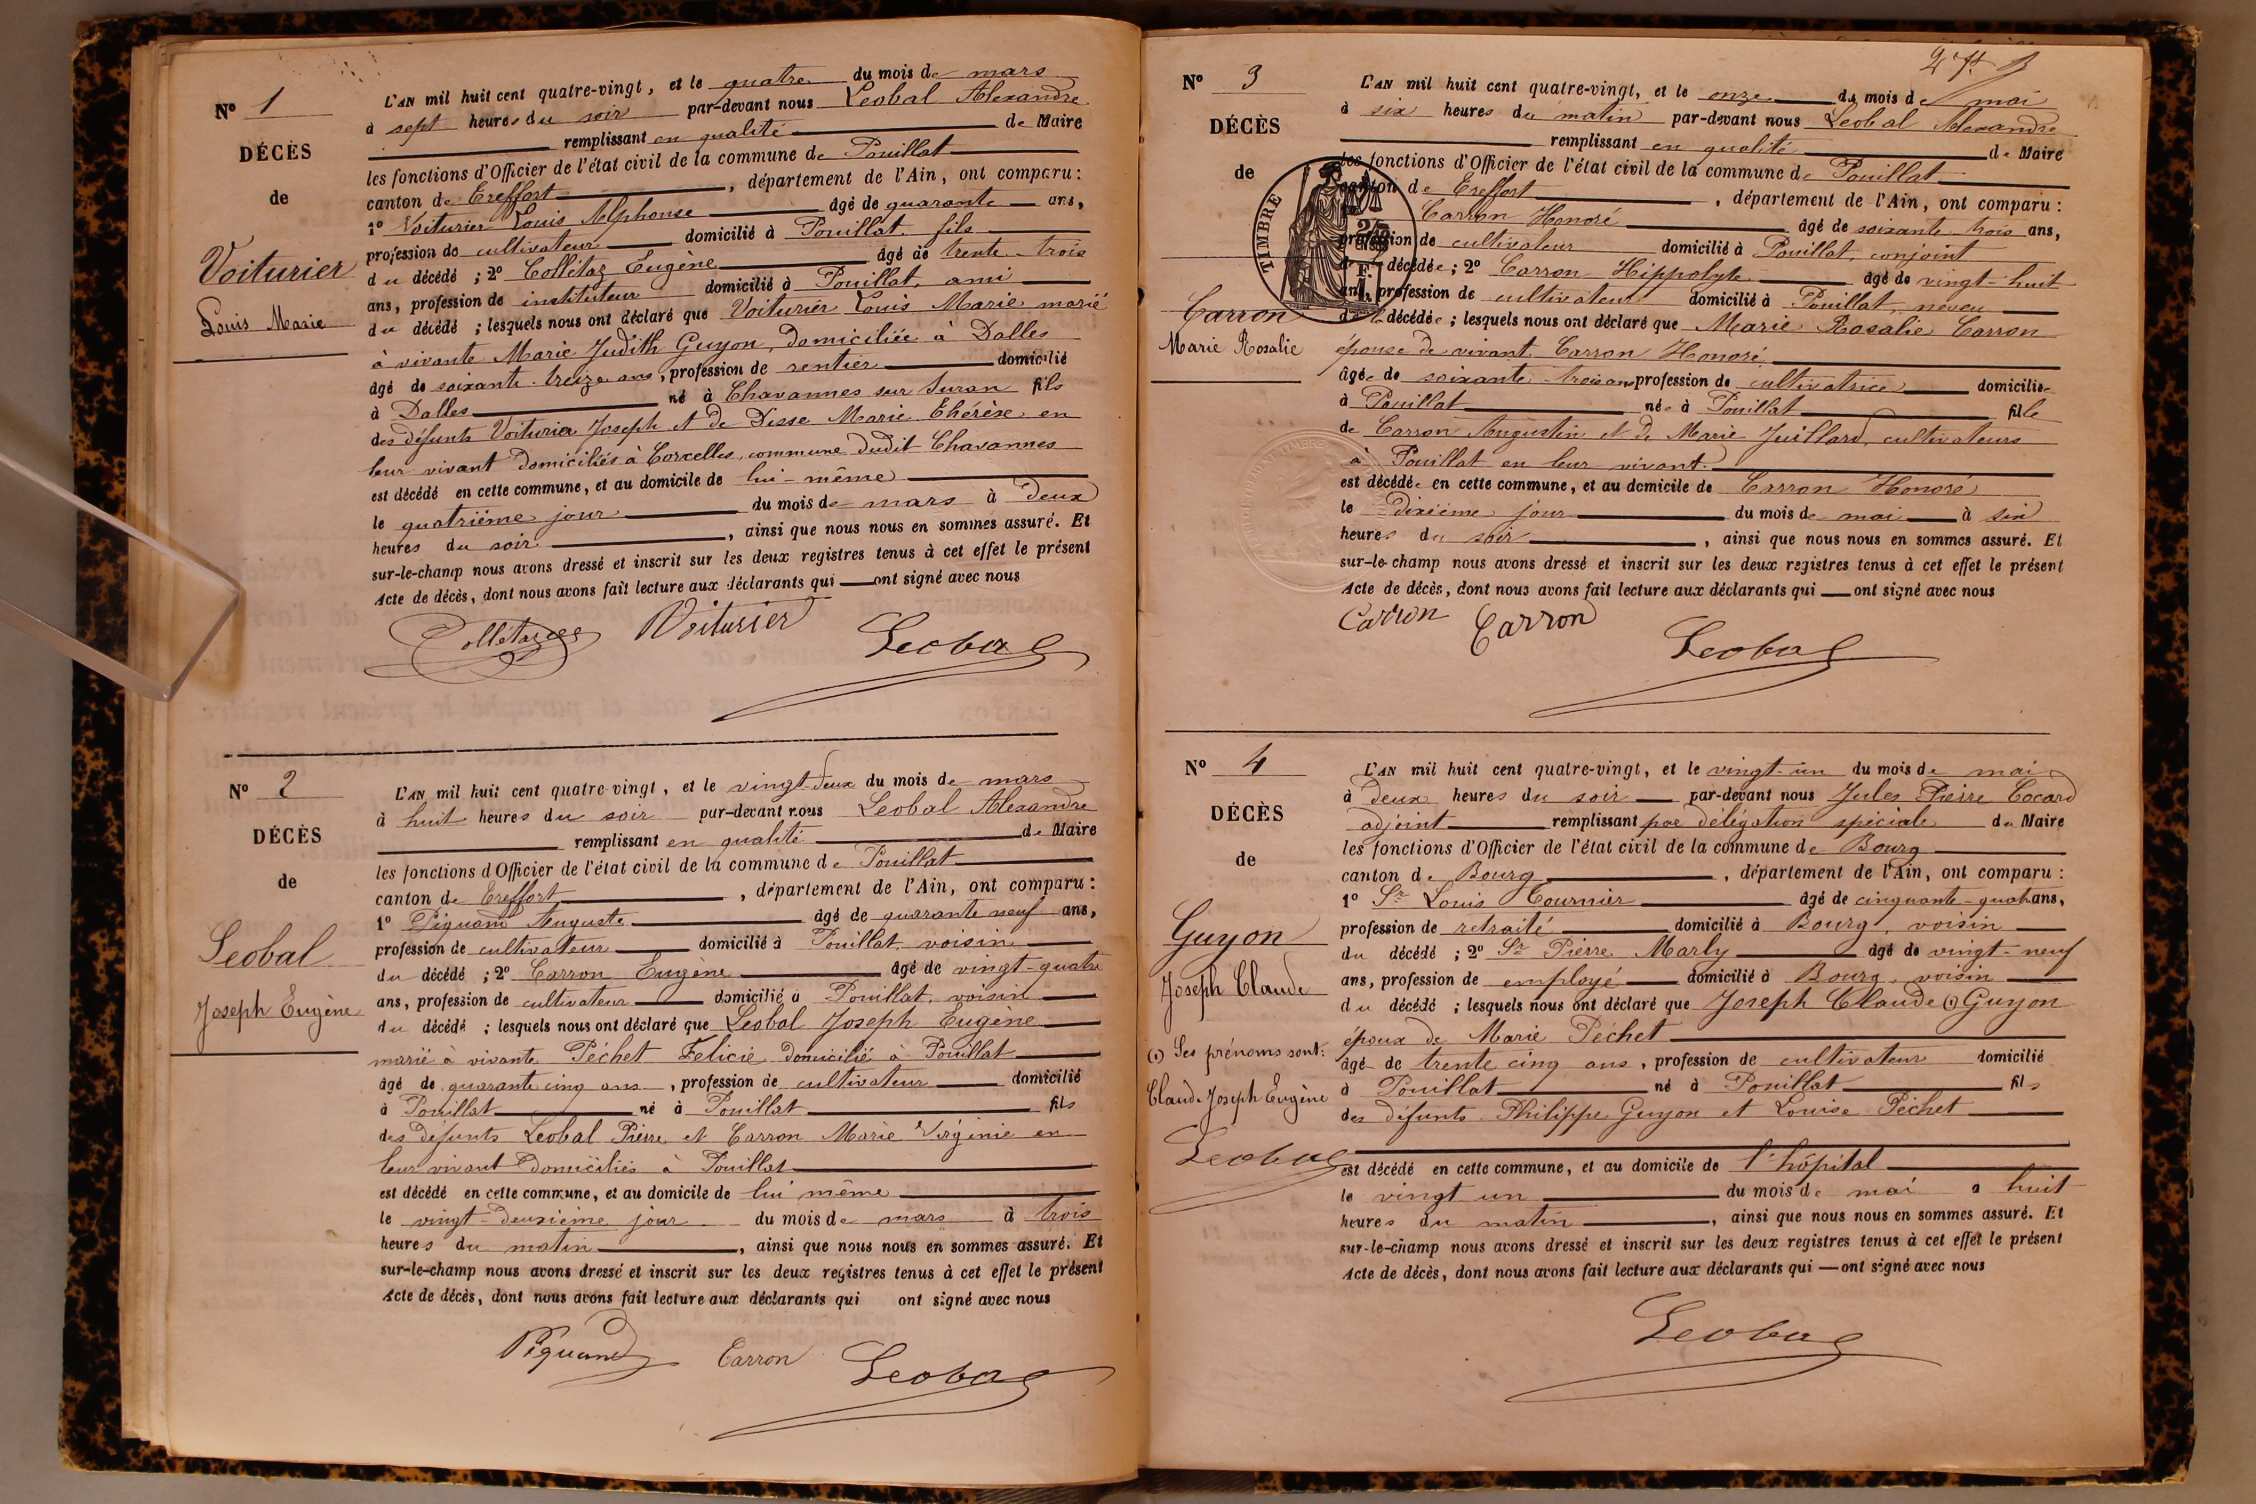 N° 1
DÉCÈS
de
Voiturier
Louis Marie
L'AN mil huit cent quatre-vingt, et le quatre du mois de mars
à sept heures du soir par-devant nous Leobal Alexandre
remplissant en qualité de Maire
les fonctions d'Officier de l'état civil de la commune de Pouillat
canton de Treffort, département de l'Ain, ont comparu:
1° Voiturier Louis Alphonse âgé de quarante ans,
profession de cultivateur domicilié à Pouillat, fils
du décédé; 2° Collétaz Eugène âgé de trente-trois
ans, profession de instituteur domicilié à Pouillat, ami
du décédé; lesquels nous ont déclaré que Voiturier Louis Marie marié
à vivante Marie Judith Guyon, domiciliée à Dalles
âgé de soixante-treize ans, profession de rentier domicilié
à Dalles né à Chavannes sur Suran fils
des défunts Voiturier Joseph et de Marie Thérèse en
leur vivant domiciliés à Corcelles, commune dudit Chavannes
est décédé en cette commune, et au domicile de lui-même
le quatrième jour du mois de mars à deux
heures du soir, ainsi que nous nous en sommes assuré. Et
sur-le-champ nous avons dressé et inscrit sur les deux registres tenus à cet effet le présent
Acte de décès, dont nous avons fait lecture aux déclarants qui ont signé avec nous
Collétaz Voiturier Leobal
N° 2
DÉCÈS
de
Leobal
Joseph Eugène
L'AN mil huit cent quatre-vingt, et le vingt-deux du mois de mars
à huit heures du soir par-devant nous Leobal Alexandre
remplissant en qualité de Maire
les fonctions d'Officier de l'état civil de la commune de Pouillat
canton de Treffort, département de l'Ain, ont comparu:
1° Piquand Auguste âgé de quarante neuf ans,
profession de cultivateur domicilié à Pouillat, voisin
du décédé; 2° Carron Eugène âgé de vingt-quatre
ans, profession de cultivateur domicilié à Pouillat, voisin
du décédé; lesquels nous ont déclaré que Leobal Joseph Eugène
marié à vivante Péchet Felicie domicilié à Pouillat
âgé de quarante cinq ans, profession de cultivateur domicilié
à Pouillat né à Pouillat fils
des défunts Leobal Pierre et Carron Marie Virginie en
leur vivant domiciliés à Pouillat
est décédé en cette commune, et au domicile de lui même
le vingt-deuxième jour du mois de mars à trois
heures du matin, ainsi que nous nous en sommes assuré. Et
sur-le-champ nous avons dressé et inscrit sur les deux registres tenus à cet effet le présent
Acte de décès, dont nous avons fait lecture aux déclarants qui ont signé avec nous
Piquand Carron Leobal
N° 3
DÉCÈS
de
TIMBRE
Carron
Marie Rosalie
L'AN mil huit cent quatre-vingt, et le onze du mois de mai
à six heures du matin par-devant nous Leobal Alexandre
remplissant en qualité de Maire
les fonctions d'Officier de l'état civil de la commune de Pouillat
canton de Treffort, département de l'Ain, ont comparu:
Carron Honoré âgé de soixante-trois ans,
profession de cultivateur domicilié à Pouillat, conjoint
de la décédée; 2° Carron Hippolyte âgé de vingt-huit
ans, profession de cultivateur domicilié à Pouillat, neveu
de la décédée; lesquels nous ont déclaré que Marie Rosalie Carron
épouse de vivant Carron Honoré
âgée de soixante-trois ans profession de cultivatrice domiciliée
à Pouillat née à Pouillat fille
de Carron Augustin et de Marie Juillard, cultivateurs
à Pouillat en leur vivant.
est décédée en cette commune, et au domicile de Carron Honoré
le dixième jour du mois de mai à six
heures du soir, ainsi que nous nous en sommes assuré. Et
sur-le-champ nous avons dressé et inscrit sur les deux registres tenus à cet effet le présent
Acte de décès, dont nous avons fait lecture aux déclarants qui ont signé avec nous
Carron Carron Leobal
N° 4
DÉCÈS
de
Guyon
Joseph Claude
(1) Ses prénoms sont:
Claude Joseph Eugène
Leobal
L'AN mil huit cent quatre-vingt, et le vingt-un du mois de mai
à deux heures du soir par-devant nous Jules Pierre Cocard
adjoint remplissant par délégation spéciale du Maire
les fonctions d'Officier de l'état civil de la commune de Bourg
canton de Bourg, département de l'Ain, ont comparu:
1° Sr Louis Tournier âgé de cinquante-quatre ans,
profession de retraité domicilié à Bourg, voisin
du décédé; 2° Sr Pierre Marly âgé de vingt-neuf
ans, profession de employé domicilié à Bourg, voisin
du décédé; lesquels nous ont déclaré que Joseph Claude (1) Guyon
époux de Marie Péchet
âgé de trente cinq ans, profession de cultivateur domicilié
à Pouillat né à Pouillat fils
des défunts Philippe Guyon et Louise Péchet
est décédé en cette commune, et au domicile de l'hôpital
le vingt un du mois de mai à huit
heures du matin, ainsi que nous nous en sommes assuré. Et
sur-le-champ nous avons dressé et inscrit sur les deux registres tenus à cet effet le présent
Acte de décès, dont nous avons fait lecture aux déclarants qui — ont signé avec nous
Leobal